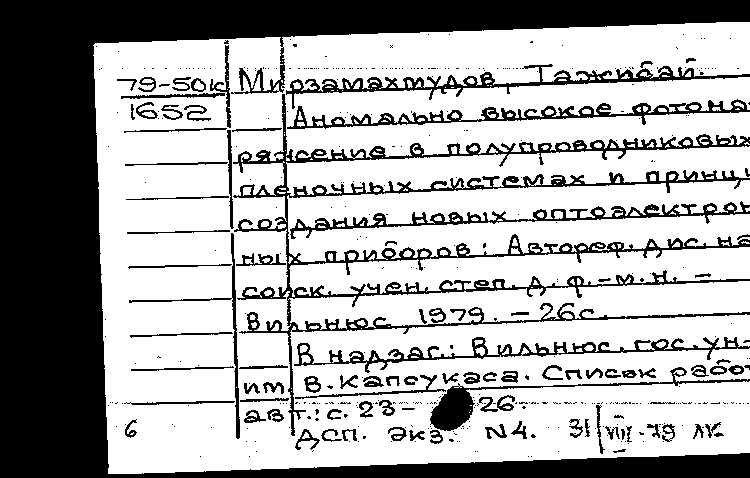 79-50к Мирзамахмудов, Тажибай.
1652 Аномально высокое фотона
ряжение в полупроводниковых
пленочных системах и принци
создания новых оптоэлектрон
ных приборов: Автореф. дис. на
соиск. учен. степ. д. ф.-м. н. -
Вильнюс, 1979. - 26с.
В надзаг.: Вильнюс. гос. ун-
им. В. Капсукаса. Список работ
авт.: с. 23- 26.
6 ДСП. Экз. N4. 31/VIII-79 ЛК